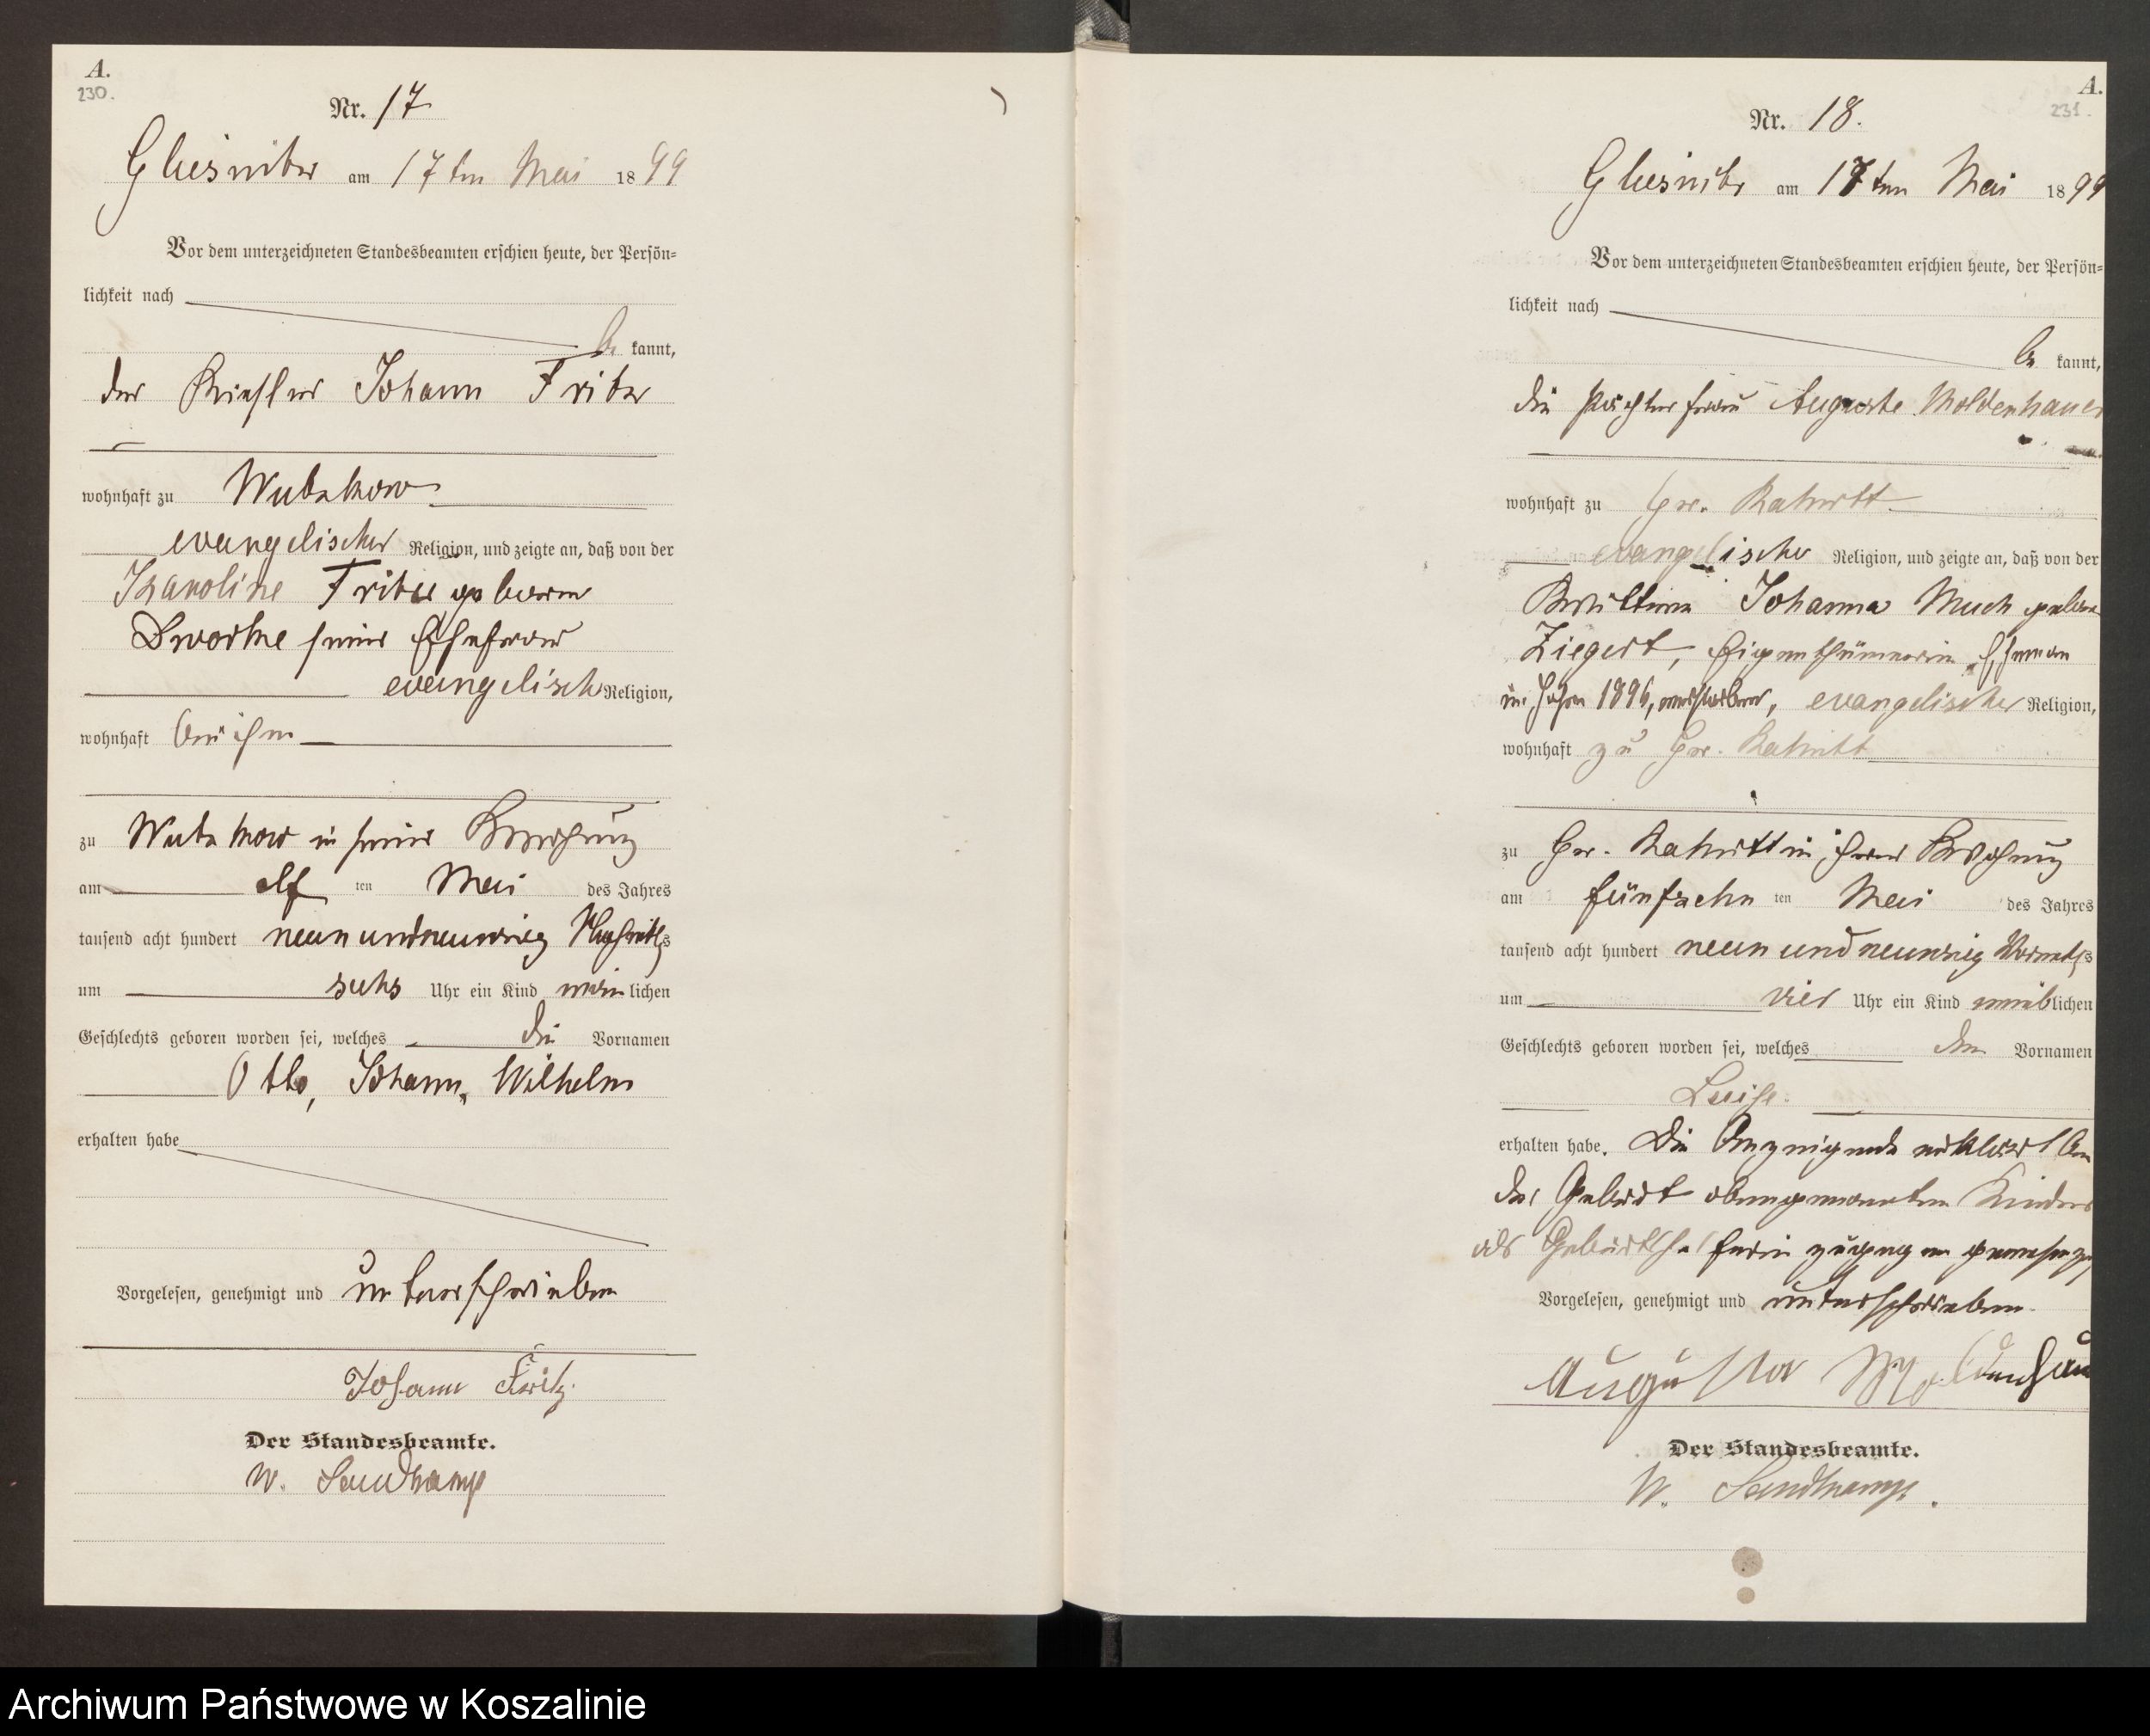 A.
230.
Nr. 17
Gliesnitz am 17ten Mai 1899
Vor dem unterzeichneten Standesbeamten erschien heute, der Persön-
lichkeit nach
be kannt,
der Johann Fritz
wohnhaft zu
evangelischer Religion, und zeigte an, daß von der
Karoline Fritz geborne
seiner Ehefrau
evangelischer Religion,
wohnhaft bei ihm
zu in seiner Wohnung
am elf ten Mai des Jahres
tausend acht hundert neunundneunzig Nachmittgs
um sechs Uhr ein Kind männlichen
Geschlechts geboren worden sei, welches die Vornamen
Otto, Johann, Wilhelm
erhalten habe
Vorgelesen, genehmigt und unterschrieben
Johann Fritz.
Der Standesbeamte.
W. Sandkamp
A.
231.
Nr. 18.
Gliesnitz am 17ten Mai 1899
Vor dem unterzeichneten Standesbeamten erschien heute, der Persön-
lichkeit nach
be kannt,
die Pächterfrau Auguste Moldenhauer
wohnhaft zu Gr. Rakitt
evangelischer Religion, und zeigte an, daß von der
Wittwe Johanna Much geborne
Ziegert, Eigenthümerin, Ehemann
im Jahre 1896, verstorben, evangelischer Religion,
wohnhaft zu Gr. Rakitt
zu Gr. Rakitt in ihrer Wohnung
am fünfzehn ten Mai des Jahres
tausend acht hundert neunundneunzig Vormittgs
um vier Uhr ein Kind weiblichen
Geschlechts geboren worden sei, welches den Vornamen
Luise.
erhalten habe. Die Anzeigende erklärt bei
der Geburt obengenannten Kindes
als Geburtshelferin zugegen gewesen zu
Vorgelesen, genehmigt und unterschrieben.
Auguste Moldenhau
Der Standesbeamte.
W. Sandkamp.
Archiwum Państwowe w Koszalinie